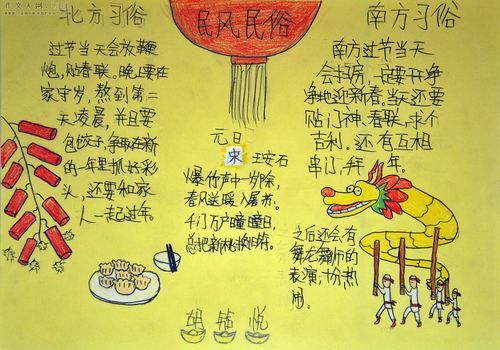 北方习俗
过节当天会放鞭
炮,贴春联。晚上要在
家守岁,熬到第二
天凌晨,并且要
包饺子,争取在新
的一年里抓好彩
头,还要和家
人一起过年。
民风民俗
元日
宋 王安石
爆竹声中一岁除,
春风送暖入屠苏。
千门万户曈曈日,
总把新桃换旧符。
胡 悦
南方习俗
南方过节当天
会扫房,一定要干净
净地迎新春。当天还要
贴门神、春联,求个
吉利。还有互相
串门,拜年。
之后还会有
舞龙舞狮的
表演,十分热
闹。